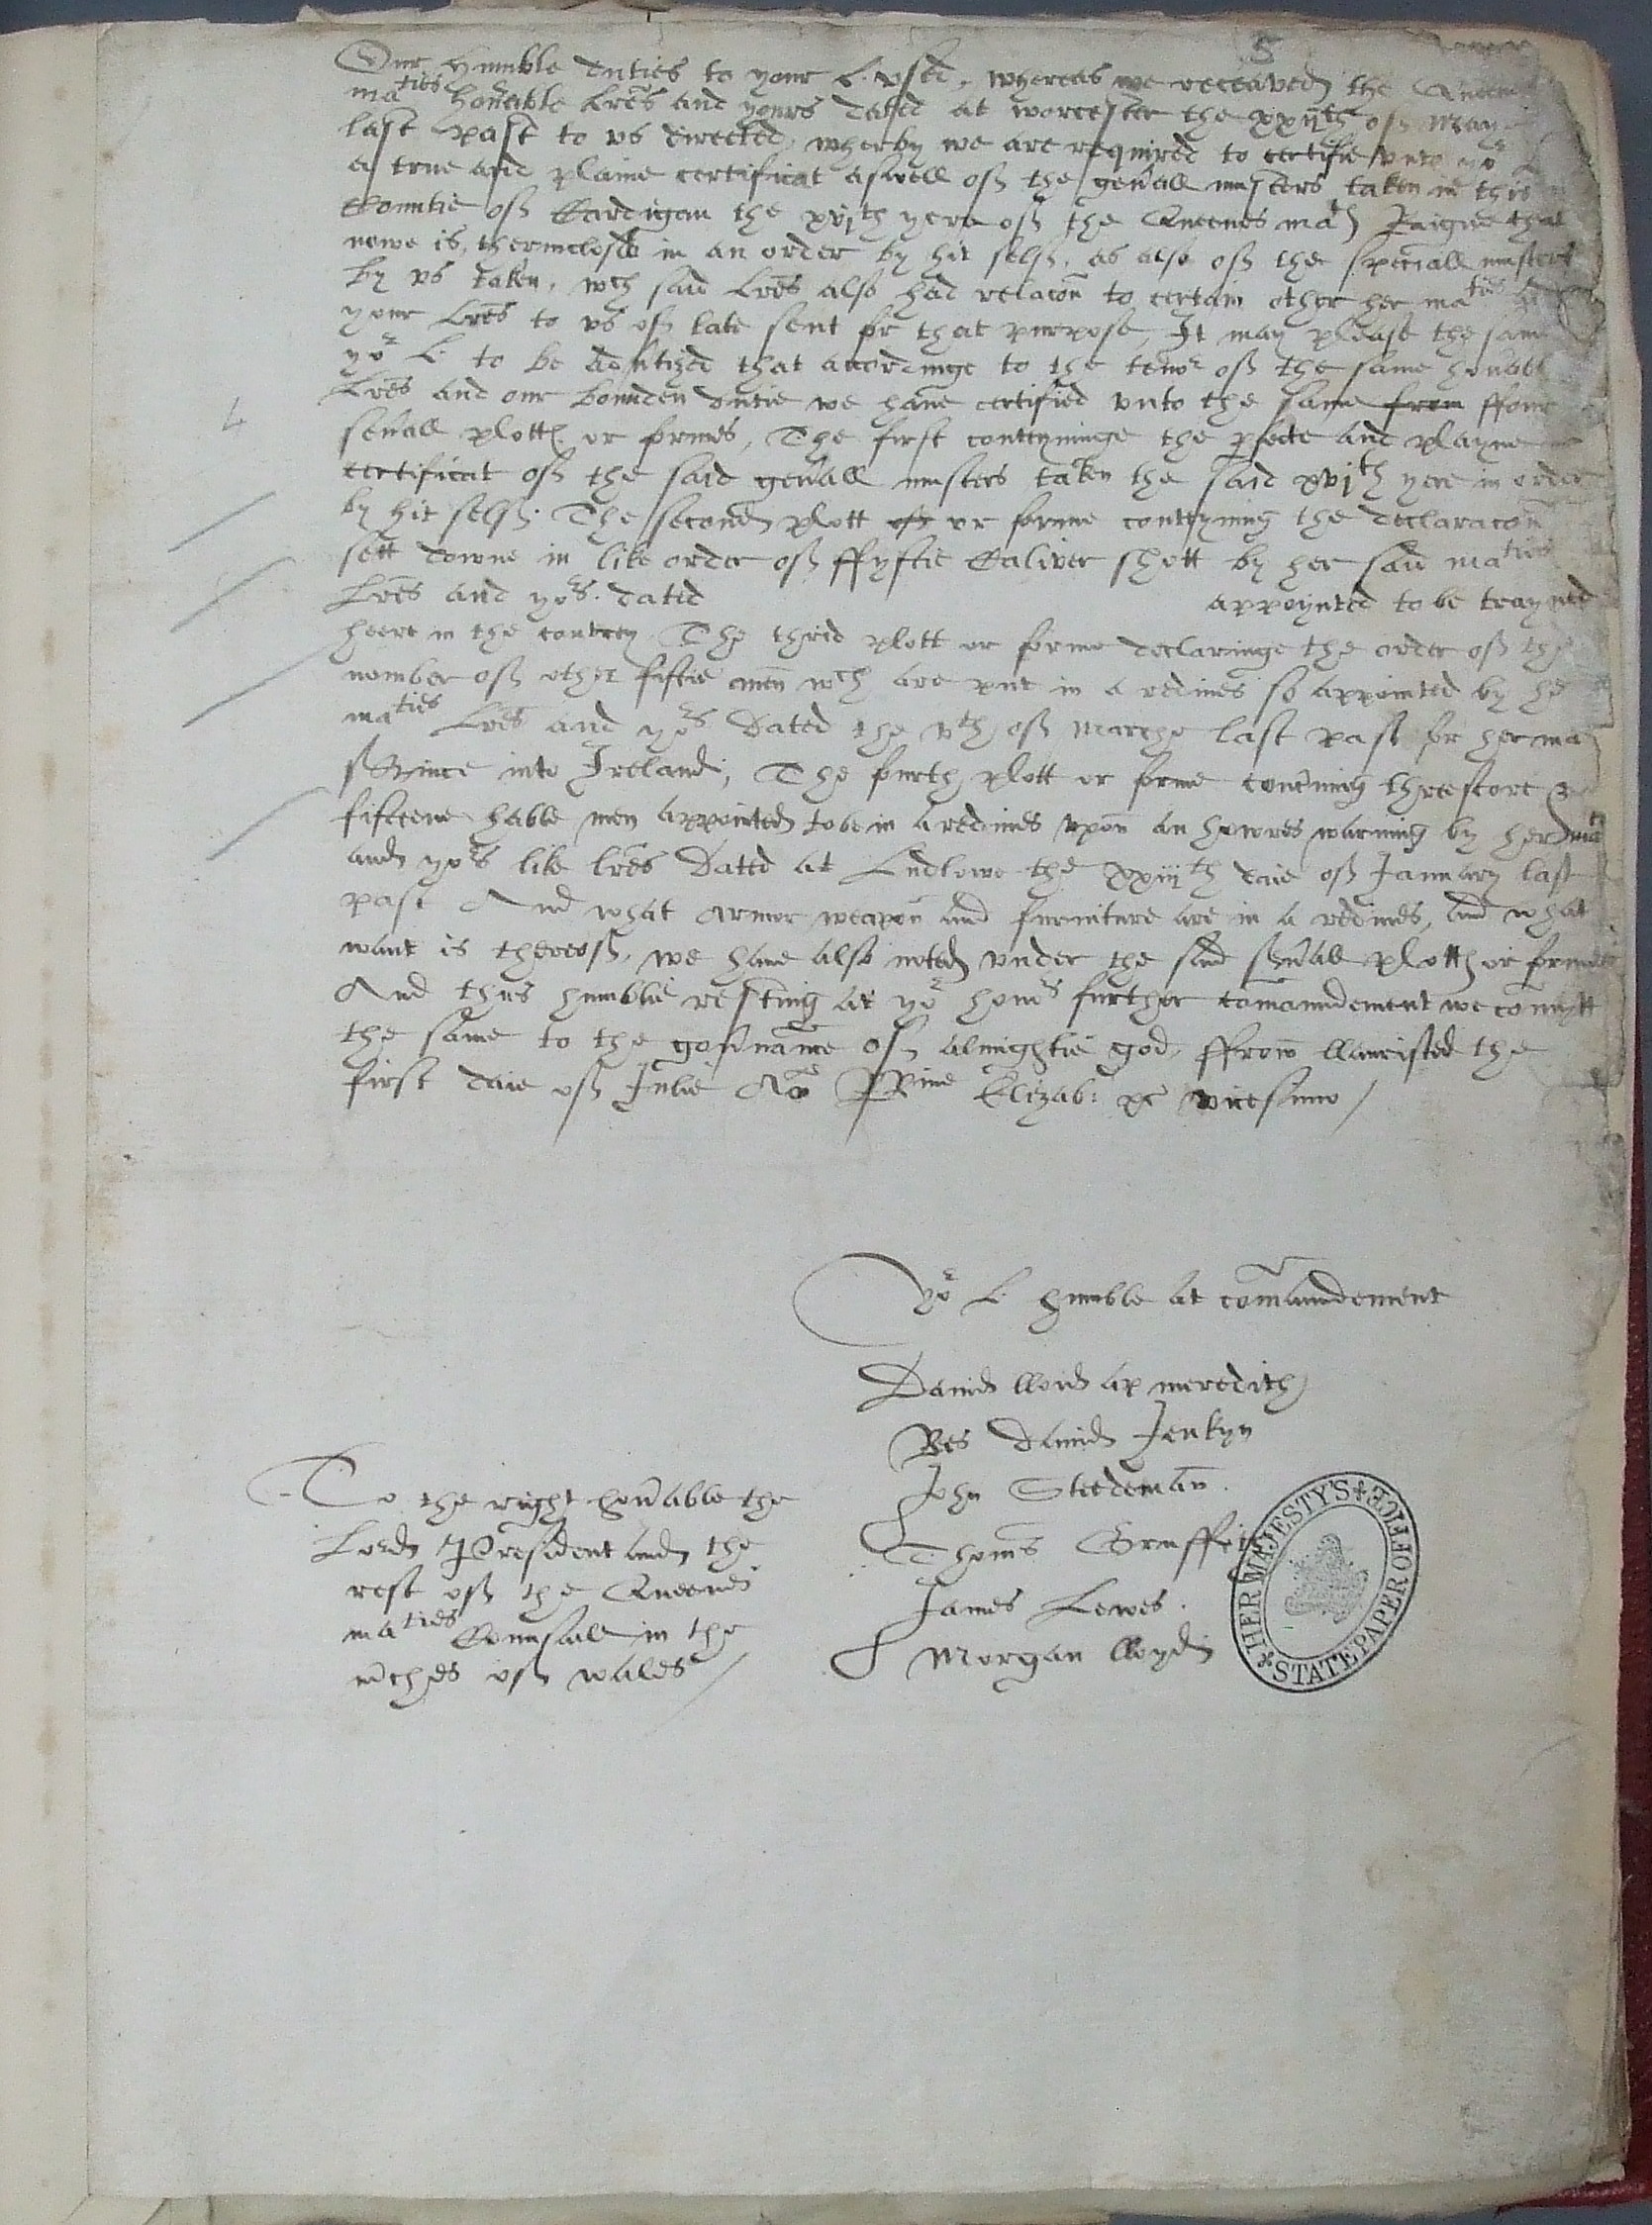 5
Our humble duties to your L. vsed, whereas we receaved the Queenes
maties honable lres and yours dated at worcester the xxijth of Maye
last past to vs directed, wherby we are required to certifie vnto yor
a true and plaine certificat aswell of the genall musters taken in this
Countie of Cardigan the xvjth yere of the Queenes mats Raigne that
nowe is, therinclosed in an order by hit self, as also of the speciall musters
by vs taken, wch said lres also had relacon to certain other her maties and
your lres to vs of late sent for that purpose, It may please the same
yor L. to be advtized that accordinge to the tenor of the same honable
Lres and our bounden dutie we have certified vnto the same from ffoure
4
sevall plotts or formes, The first conteyninge the pfecte and playne
certificat of the said genall musters taken the said xvjth yere in order
by hit self. The second plott of or forme conteyning the declaracon
sett downe in like order of ffyftie Caliver shott by her said maties
Lres and yors. dated appoynted to be trayned
heere in the contrey. The thrid plott or forme declaringe the order of the
nomber of other fiftie men wch are put in a redines so appointed by her
maties Lres and yors Dated the vth of Marche last past for her mats
svice into Ireland, The fourth plott or forme conteyning threscore &
fifteene hable men appointed to be in a redines vpon an howres warning by her mats
and yors like lres Dated at Ludlowe the xxiijth daie of January last
past And what armor weapon and furniture are in a redines, and what
want is therof, we have also noted vnder the said sevall plotts or formes
And thus humblie resting at yor honors further comaundement we comytt
the same to the govnance of almightie god, ffrom llanristed the
first daie of Julie Ao RRine Elizab: xc vicesimo /
Yor L. humble at comaundement
David lloid ap meredith
Res David Jenkyn
John Stedeman.
Thomas Gruffeth
James Lewes.
Morgan lloyd
To the right honable the
Lord President and the
rest of the Queenes
maties Counsaile in the
mches of wales /
HER MAJESTY'S STATE PAPER OFFICE